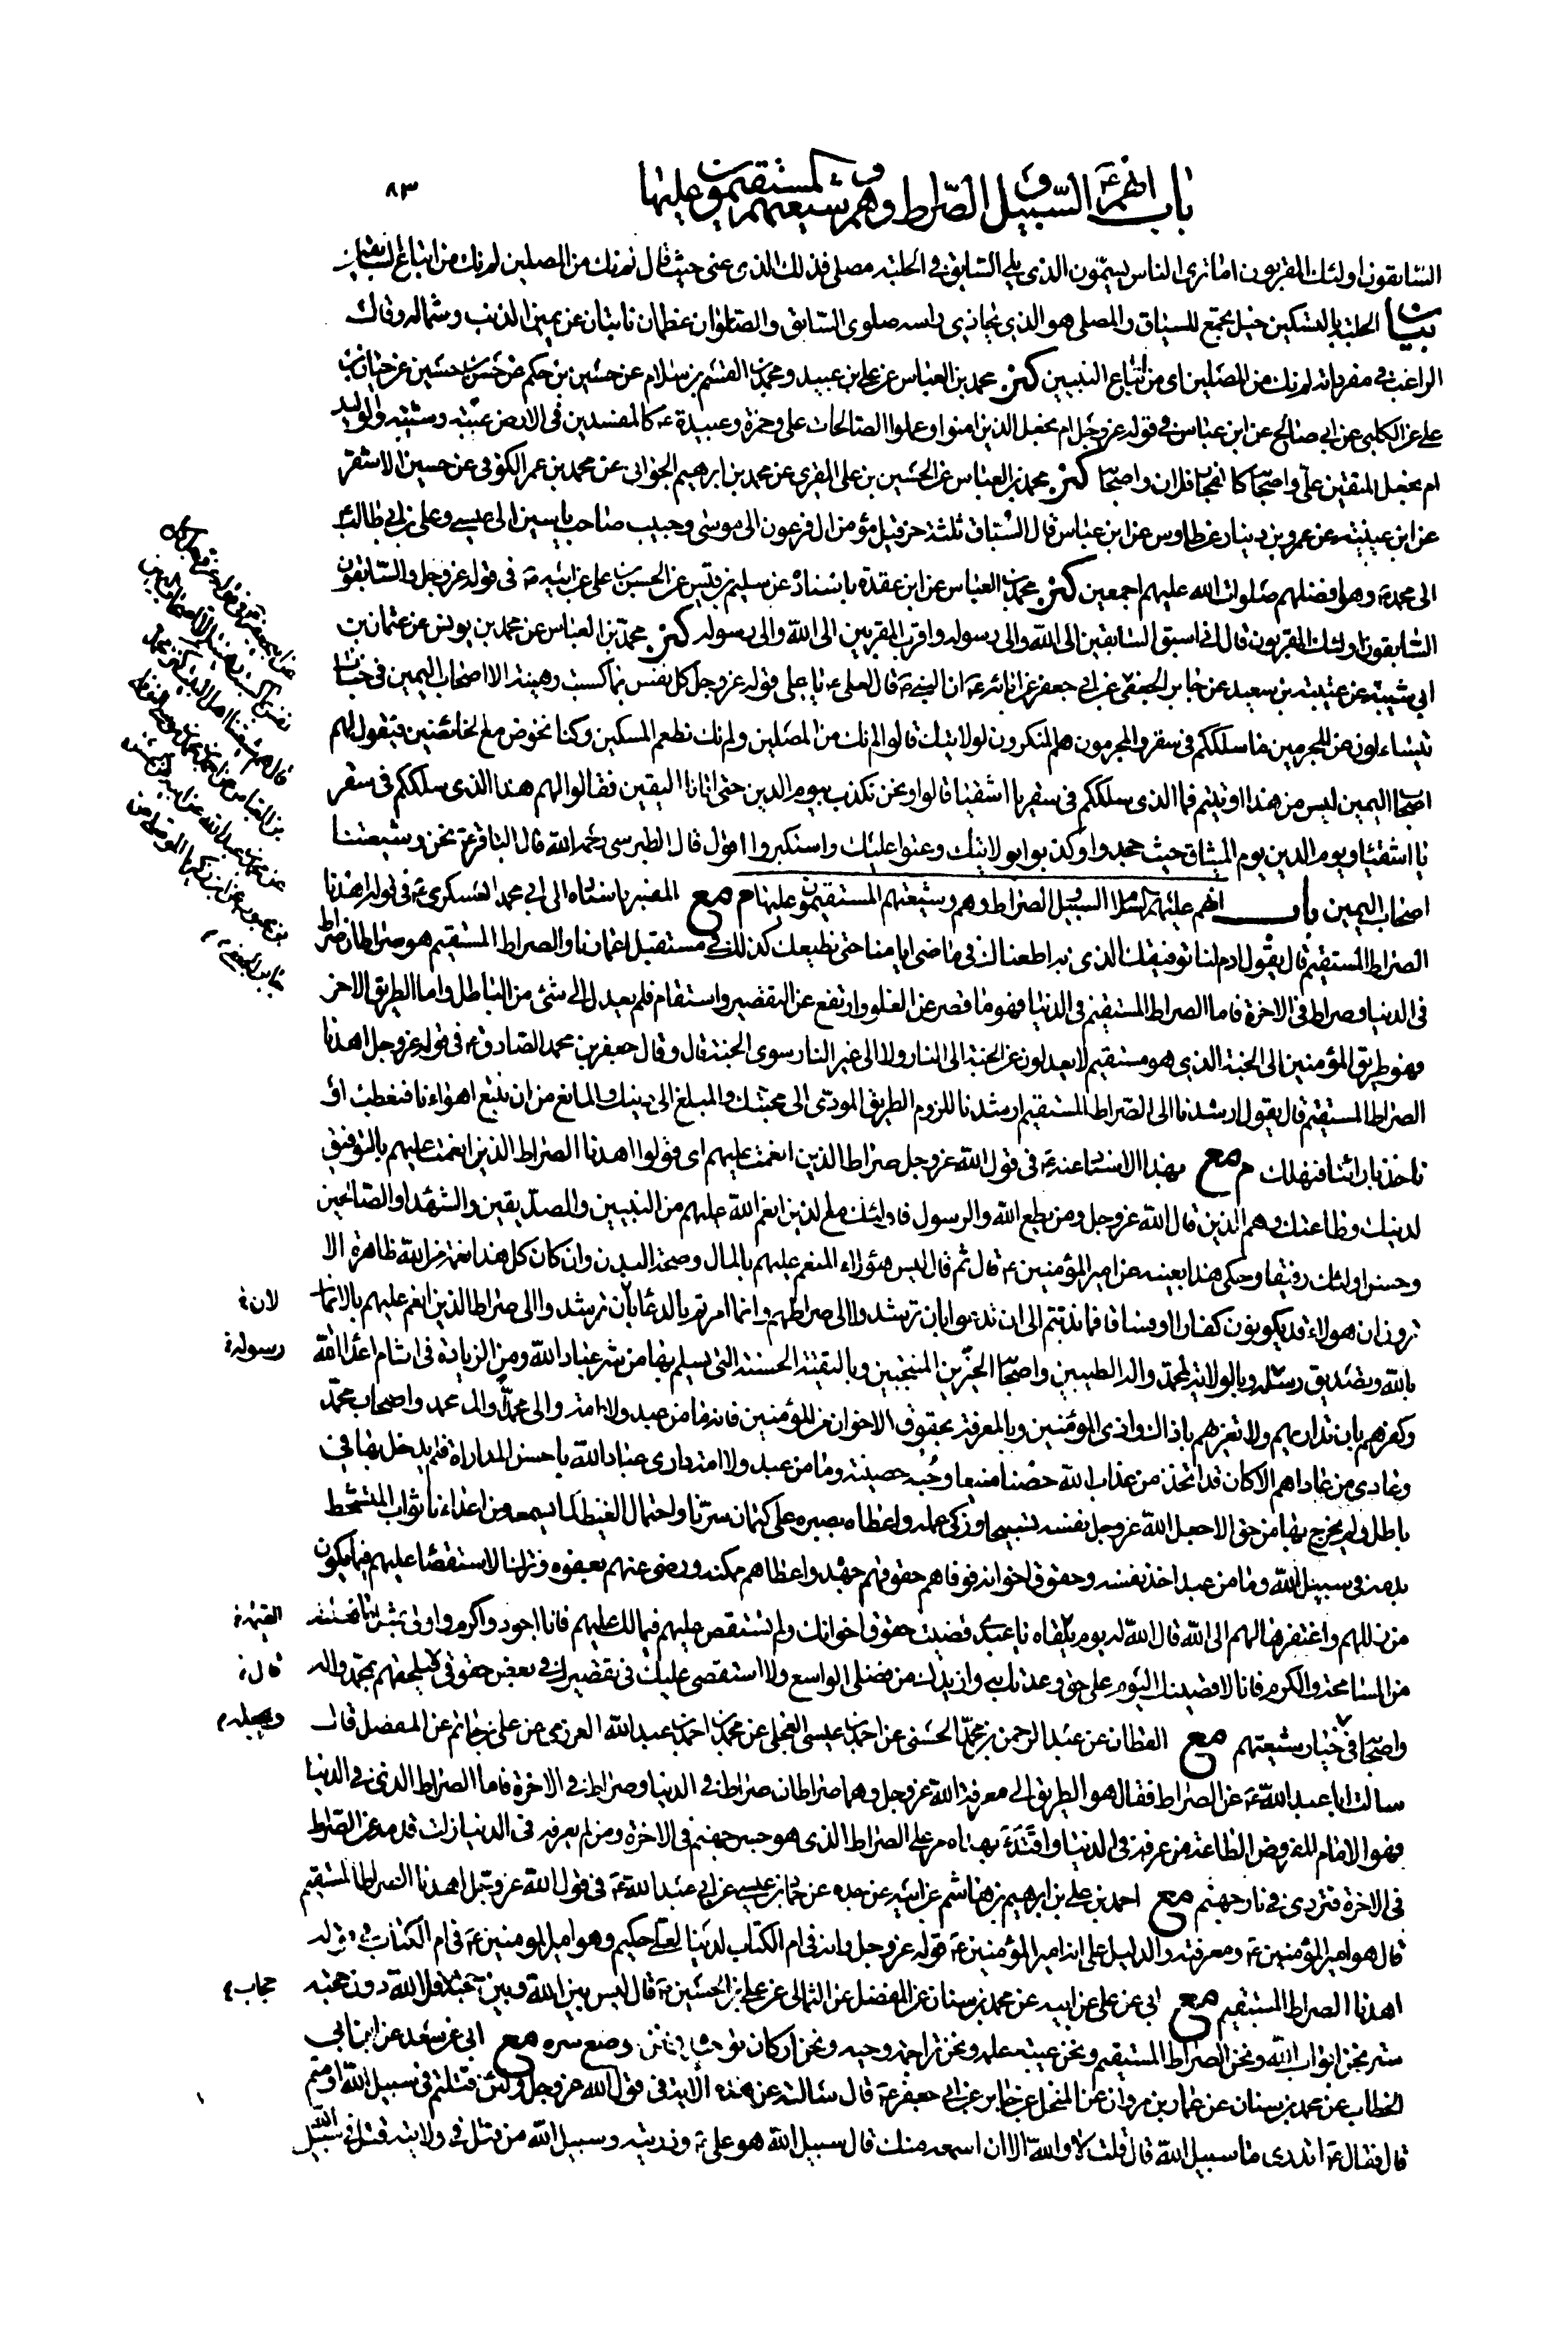 باب انهم ع السبيل والصراط وهم وشيعتهم المستقيمون عليها
٨٣
السابقون اولئك المقربون اما ترى الناس يسمون الذي يلي السابق في الحلبة مصلى فذلك الذي عنى حيث قال لم نك من المصلين لم نك من اتباع السابقين
بيان الحلبة بالتسكين خيل يجمع للسباق والمصلى هو الذي يحاذي راسه صلوى السابق والصلوان عظمان نابتان عن يمين الذنب وشماله وقال
الراغب في مفرداته لم نك من المصلين اى من اتباع النبيين كنز محمد بن العباس عن علي بن عبيد ومحمد بن القسم بن سلام عن حسين بن حكم عن حسن بن حسين عن حيان بن
علي عن الكلبي عن ابي صالح عن ابن عباس في قوله عز وجل ام نجعل الذين امنوا وعملوا الصالحات علي وحمزة وعبيدة ع كالمفسدين في الارض عتبة وشيبة والوليد
ام نجعل المتقين علي واصحابه كالفجار فلان واصحابه كنز محمد بن العباس عن الحسين بن علي المقري عن محمد بن ابرهيم الجواني عن محمد بن عمر الكوفي عن حسين الاشقر
عن ابن عيينة عن عمرو بن دينار عن طاوس عن ابن عباس قال السباق ثلثة حزقيل مؤمن ال فرعون الى موسى وحبيب صاحب ياسين الى عيسى وعلي بن ابي طالب ع
الى محمد ص وهو افضلهم صلوات الله عليهم اجمعين كنز محمد بن العباس عن ابن عقدة باسناده عن سليم بن قيس عن الحسن بن علي عن ابيه ع في قوله عز وجل والسابقون
السابقون اولئك المقربون قال اني اسبق السابقين الى الله والى رسوله واقرب المقربين الى الله والى رسوله كنز محمد بن العباس عن محمد بن يونس عن عثمان بن
ابي شيبة عن عتيبة بن سعيد عن جابر الجعفي عن ابي جعفر عن ابائه ع ان النبي ص قال لعلي ع يا علي قوله عز وجل كل نفس بما كسبت رهينة الا اصحاب اليمين في جنات
يتساءلون عن المجرمين ما سلككم في سقر والمجرمون هم المنكرون لولايتك قالوا لم نك من المصلين ولم نك نطعم المسكين وكنا نخوض مع الخائضين فيقول لهم
اصحاب اليمين ليس من هذا اوتيتم فما الذي سلككم في سقر يا اشقيا قالوا وكنا نكذب بيوم الدين حتى اتانا اليقين فقالوا لهم هذا الذي سلككم في سقر
يا اشقيا ويوم الدين يوم الميثاق حيث جحدوا وكذبوا بولايتك وعتوا عليك واستكبروا اقول قال الطبرسي رحمه الله قال الباقر ع نحن وشيعتنا
اصحاب اليمين باب انهم عليهم السلام السبيل والصراط وهم وشيعتهم المستقيمون عليها م مع المفسر باسناده الى ابي محمد العسكري ع في قوله اهدنا
الصراط المستقيم قال يقول ادم لنا توفيقك الذي به اطعناك في ماضي ايامنا حتى نطيعك كذلك في مستقبل اعمارنا والصراط المستقيم هو صراطان صراط
في الدنيا وصراط في الاخرة فاما الصراط المستقيم في الدنيا فهو ما قصر عن الغلو وارتفع عن التقصير واستقام فلم يعدل الى شئ من الباطل واما الطريق الاخر
فهو طريق المؤمنين الى الجنة الذي هو مستقيم لا يعدلون عن الجنة الى النار ولا الى غير النار سوى الجنة قال وقال جعفر بن محمد الصادق ع في قوله عز وجل اهدنا
الصراط المستقيم قال يقول ارشدنا الى الصراط المستقيم ارشدنا للزوم الطريق المودي الى محبتك والمبلغ الى دينك والمانع من ان نتبع اهواءنا فنعطب او
ناخذ بارائنا فنهلك م مع بهذا الاسناد عنه ع في قول الله عز وجل صراط الذين انعمت عليهم اى قولوا اهدنا الصراط الذين انعمت عليهم بالتوفيق
لدينك وطاعتك وهم الذين قال الله عز وجل ومن يطع الله والرسول فاولئك مع الذين انعم الله عليهم من النبيين والصديقين والشهداء والصالحين
وحسن اولئك رفيقا وحكى هذا بعينه عن امير المؤمنين ع قال ثم قال ليس هؤلاء المنعم عليهم بالمال وصحة البدن وان كان كل هذا نعمة من الله ظاهرة الا
ترون ان هولاء قد يكونون كفارا او فساقا فما ندبتم الى ان تدعوا بان ترشدوا الى صراطهم وانما امرتم بالدعا بان ترشدوا الى صراط الذين انعم عليهم بالايمان
بالله وتصديق رسله وبالولاية لمحمد واله الطيبين واصحابه الخيرين المنتجبين وبالتقية الحسنة التي يسلم بها من شر عباد الله ومن الزيادة في اثام اعداء الله
وكفرهم بان تداريهم ولا تغريهم باذاك واذى المؤمنين وبالمعرفة بحقوق الاخوان من المؤمنين فانه ما من عبد ولا امة والى محمدا وال محمد واصحاب محمد
وعادى من عاداهم الا كان قد اتخذ من عذاب الله حصنا منيعا وجنة حصينة وما من عبد ولا امة دارى عباد الله باحسن المداراة فلم يدخل بها في
باطل ولم يخرج بها من حق الا جعل الله عز وجل نفسه تسبيحا وزكى عمله واعطاه بصيرة على كتمان سرنا واحتمال الغيظ لما يسمعه من اعداءنا ثواب المتشحط
بدمه في سبيل الله وما من عبد اخذ نفسه وحقوق اخوانه فوفاهم حقوقهم جهده واعطاهم ممكنه ورضي عنهم بعفوهم وترك الاستقصاء عليهم فيما يكون
من زللهم واغتفرها لهم الا قال الله له يوم يلقاه يا عبدي قضيت حقوق اخوانك ولم تستقص عليهم فيما لك عليهم فانا اجود واكرم واولى بمثل ما فعلته
من المسامحة والكرم فانا لاقضينك اليوم على حق وعدتك به وازيدك من فضلي الواسع ولا استقصي عليك في تقصيرك في بعض حقوقي فيلحقهم بمحمد واله
واصحابه في خيار شيعتهم مع القطان عن عبد الرحمن بن محمد الحسني عن احمد بن عيسى العجلي عن محمد بن احمد بن عبد الله العرزمي عن علي بن حاتم عن المفضل قال
سالت ابا عبد الله ع عن الصراط فقال هو الطريق الى معرفة الله عز وجل وهما صراطان صراط في الدنيا وصراط في الاخرة فاما الصراط الذي في الدنيا
فهو الامام المفروض الطاعة من عرفه في الدنيا واقتدى بهداه مر على الصراط الذي هو جسر جهنم في الاخرة ومن لم يعرفه في الدنيا زلت قدمه عن الصراط
في الاخرة فتردى في نار جهنم مع احمد بن علي بن ابراهيم بن هاشم عن ابيه عن جده عن حماد بن عيسى عن ابي عبد الله ع في قول الله عز وجل اهدنا الصراط المستقيم
قال هو امير المؤمنين ع ومعرفته والدليل على انه امير المؤمنين ع قوله عز وجل وانه في ام الكتاب لدينا لعلي حكيم وهو امير المومنين ع في ام الكتاب في قوله
اهدنا الصراط المستقيم مع ابي عن علي عن ابيه عن محمد بن سنان عن المفضل عن الثمالي عن علي بن الحسين ع قال ليس بين الله وبين حجته فلا لله دون حجته
ستر نحن ابواب الله ونحن الصراط المستقيم ونحن عيبة علمه ونحن تراجمة وحيه ونحن اركان توحيده ونحن موضع سره مع ابي عن سعد عن ابن ابي
الخطاب عن محمد بن سنان عن عمار بن مروان عن المنخل عن جابر عن ابي جعفر ع قال سالته عن هذه الاية في قول الله عز وجل ولئن قتلتم في سبيل الله او متم
قال فقال ع اتدري ما سبيل الله قال قلت لا والله الا ان اسمعه منك قال سبيل الله هو علي ع وذريته وسبيل الله من قتل في ولايته قتل في سبيل الله
لان
رسوله
القيمة
قال
حجاب